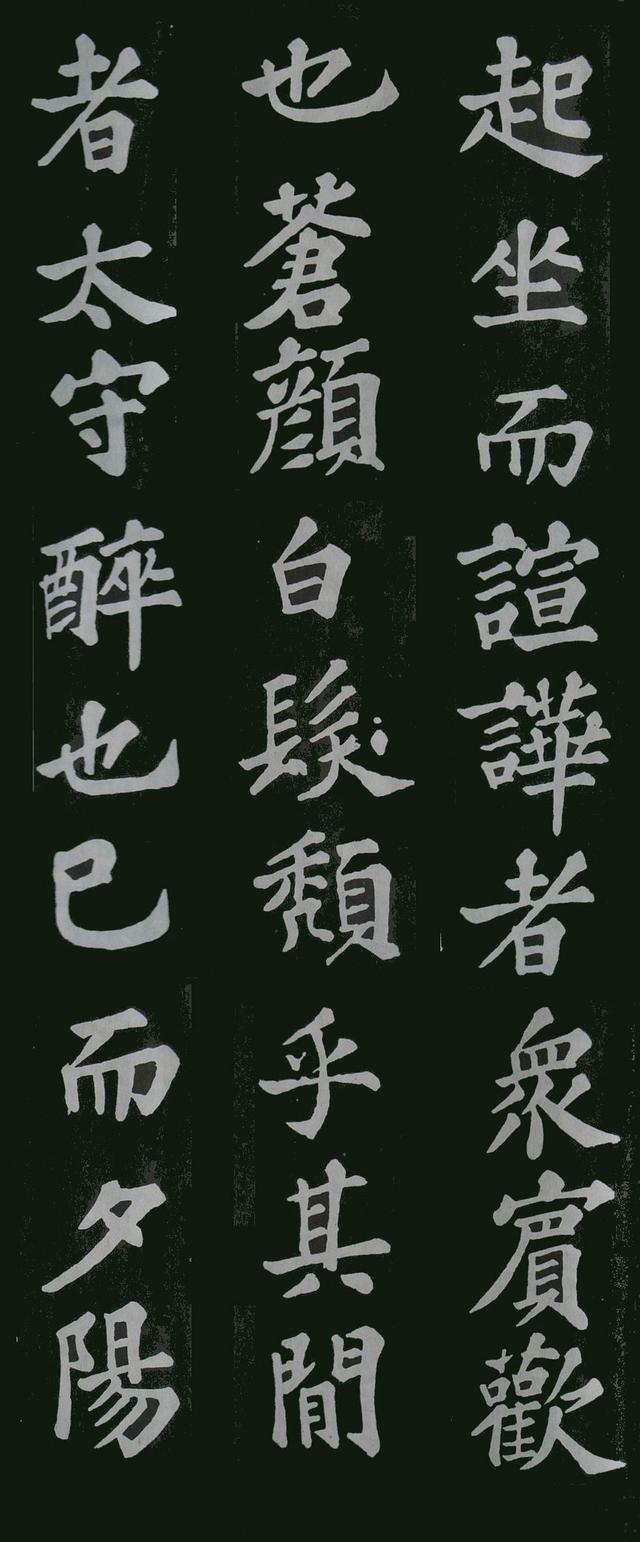 起坐而諠譁者衆賓歡
也蒼顔白髮頽乎其間
者太守醉也已而夕陽